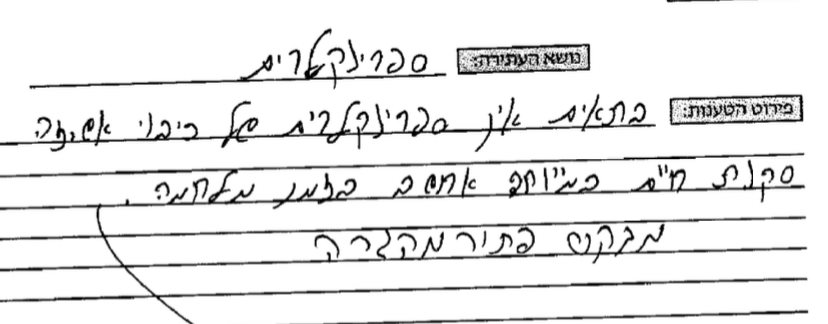 נושא העתירה: ספרינקלרים
פירוט הטענות: בתאים אין ספרינקלרים של כיבוי אש, זה
סכנת חיים במיוחד עכשיו בזמן מלחמה.
מבקש פתור מהגרה